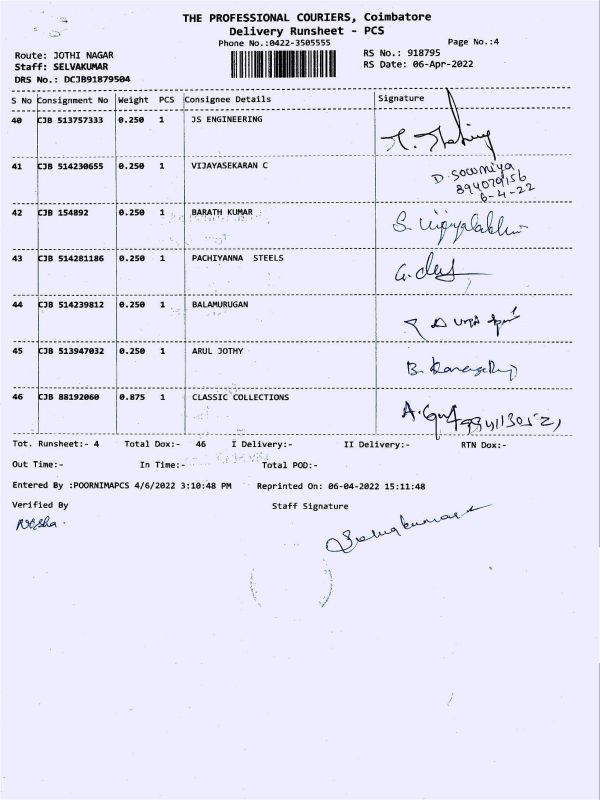 THE PROFESSIONAL COURIERS, Coimbatore
Delivery Runsheet - PCS
Phone No.:0422-3505555 Page No.:4
Route: JOTHI NAGAR RS No.: 918795
Staff: SELVAKUMAR RS Date: 06-Apr-2022
DRS No.: DCJB91879504
S No Consignment No Weight PCS Consignee Details Signature
40 CJB 513757333 0.250 1 JS ENGINEERING
41 CJB 514230655 0.250 1 VIJAYASEKARAN C
D. Sowmiya
6-4-22
42 CJB 154892 0.250 1 BARATH KUMAR
43 CJB 514281186 0.250 1 PACHIYANNA STEELS
44 CJB 514239812 0.250 1 BALAMURUGAN
45 CJB 513947032 0.250 1 ARUL JOTHY
46 CJB 88192060 0.875 1 CLASSIC COLLECTIONS
Tot. Runsheet:- 4 Total Dox:- 46 I Delivery:- II Delivery:- RTN Dox:-
Out Time:- In Time:- Total POD:-
Entered By :POORNIMAPCS 4/6/2022 3:10:48 PM Reprinted On: 06-04-2022 15:11:48
Verified By Staff Signature